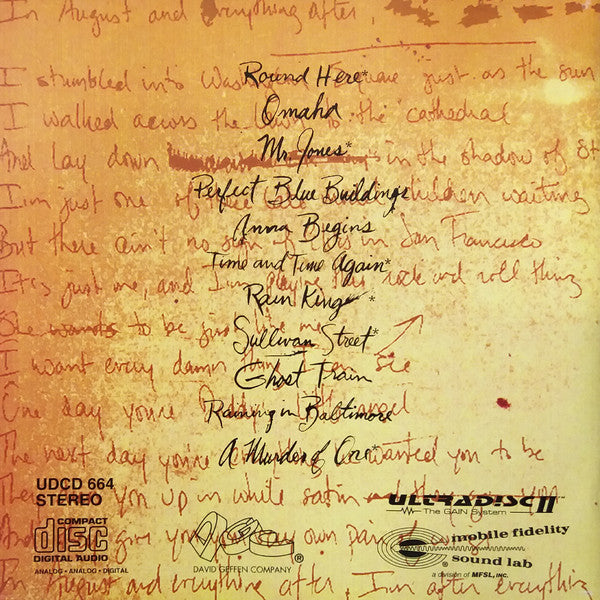 In August and everything after,
I stumbled into Washington Square just as the sun
Round Here*
Omaha
I walked across the lawn to the cathedral
Mr. Jones*
And lay down in the shadow of St
Perfect Blue Buildings
I'm just one of these late model children waiting
Anna Begins
But there ain't no sign of this in San Francisco
Time and Time Again*
It's just me, and I'm playing this rock and roll thing
Rain King *
She wants to be just like me
Sullivan Street*
I want every damn thing I can see
Ghost Train
One day you're angel
Raining in Baltimore
The next day you're wanted you to be
A Murder of One*
you up in white satin
UDCD 664
STEREO
ULTRADISC II
The GAIN System
give you your own pair of
COMPACT
disc
DIGITAL AUDIO
ANALOG • ANALOG • DIGITAL
DAVID GEFFEN COMPANY
®
mobile fidelity
sound lab
®
a division of MFSL, INC.
In August and everything after, I'm after everything